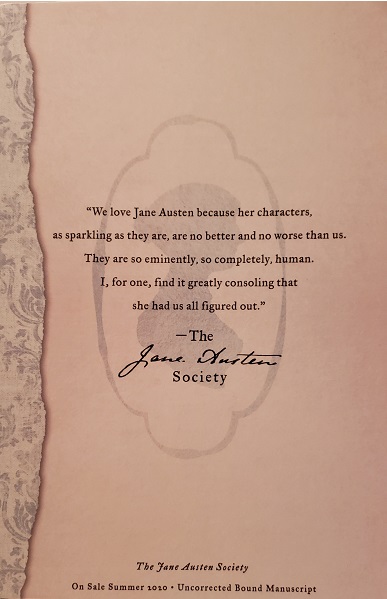 “We love Jane Austen because her characters,
as sparkling as they are, are no better and no worse than us.
They are so eminently, so completely, human.
I, for one, find it greatly consoling that
she had us all figured out.”
—The
Jane Austen
Society
The Jane Austen Society
On Sale Summer 2020 • Uncorrected Bound Manuscript